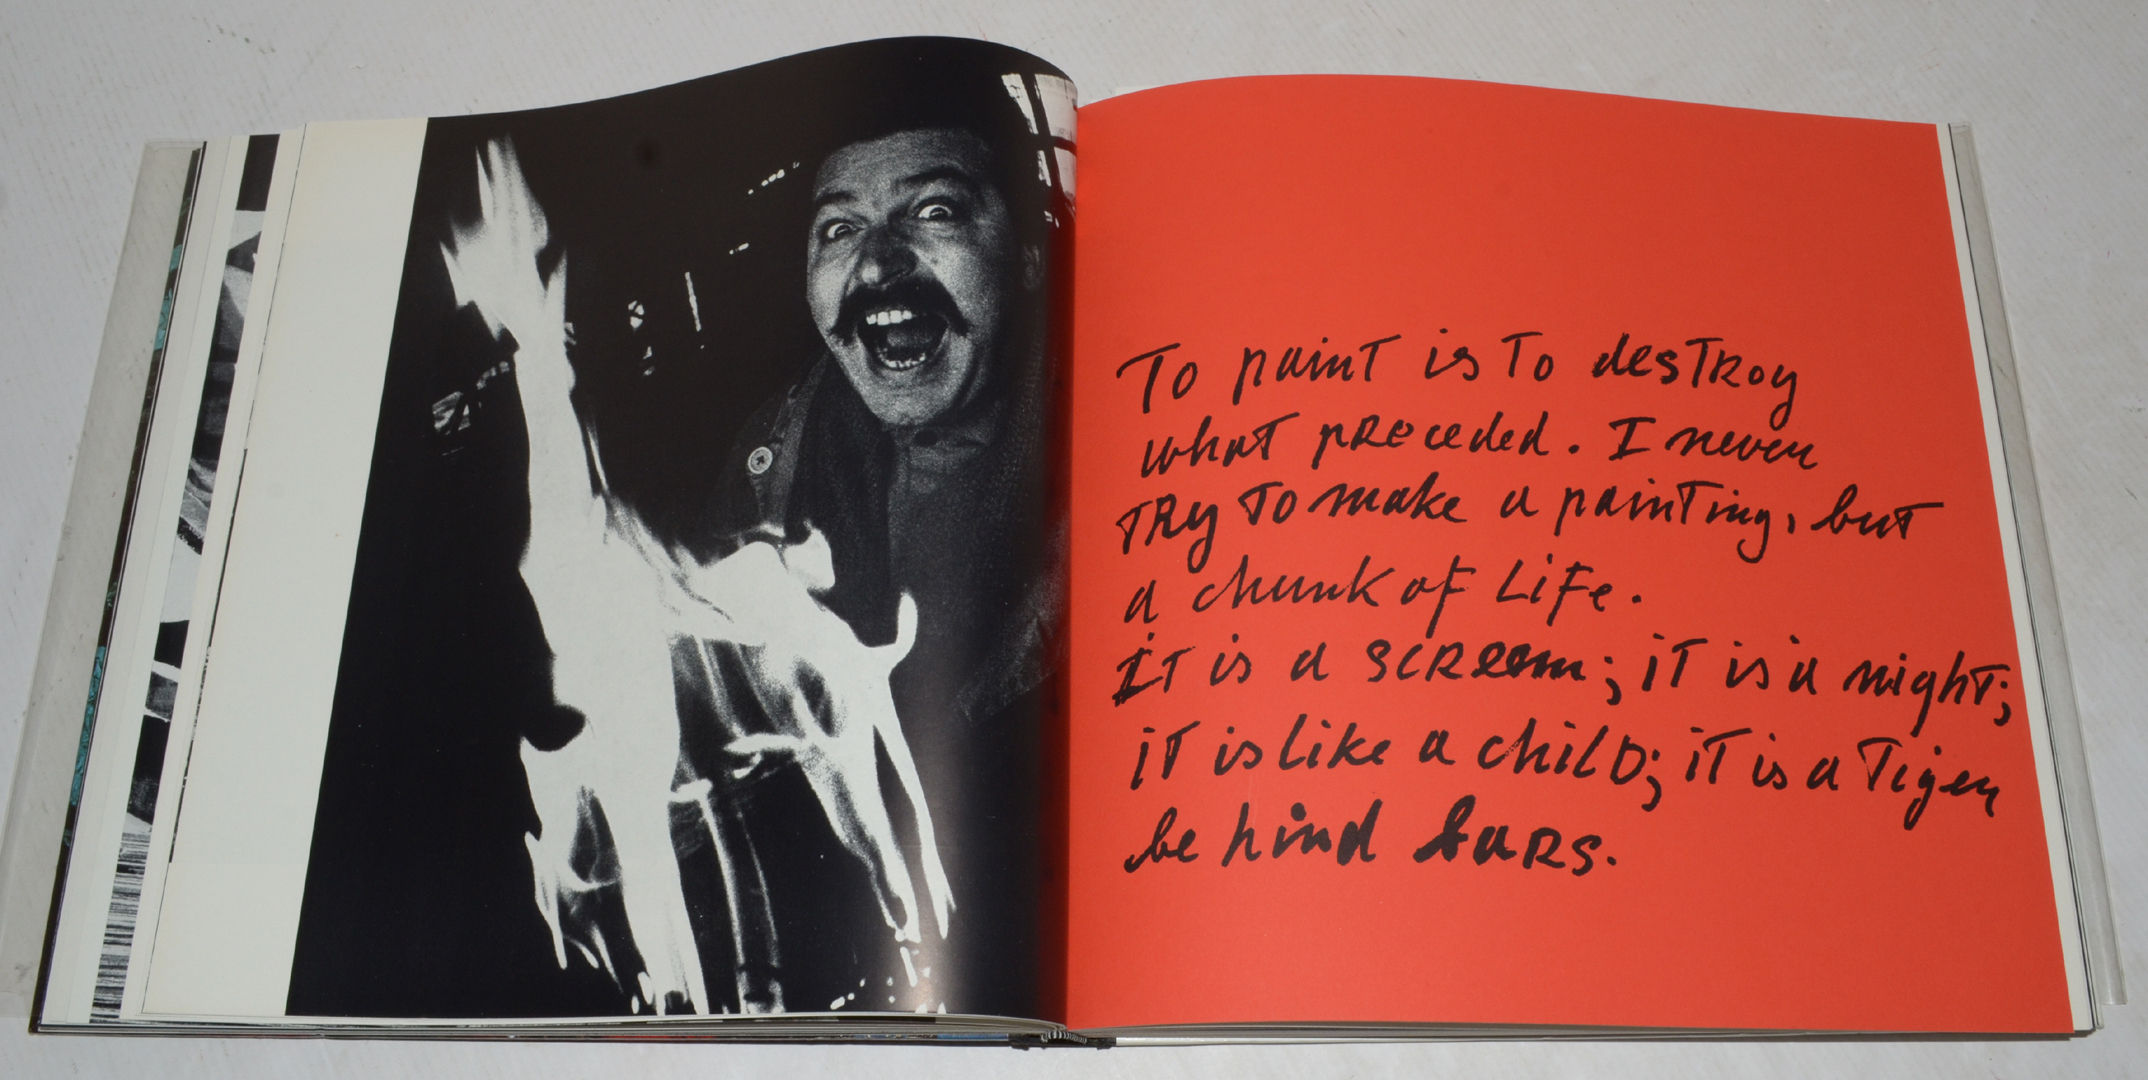 To paint is to destroy
what preceded. I never
try to make a painting, but
a chunk of Life.
It is a scream; it is a night;
it is like a child; it is a Tiger
behind bars.